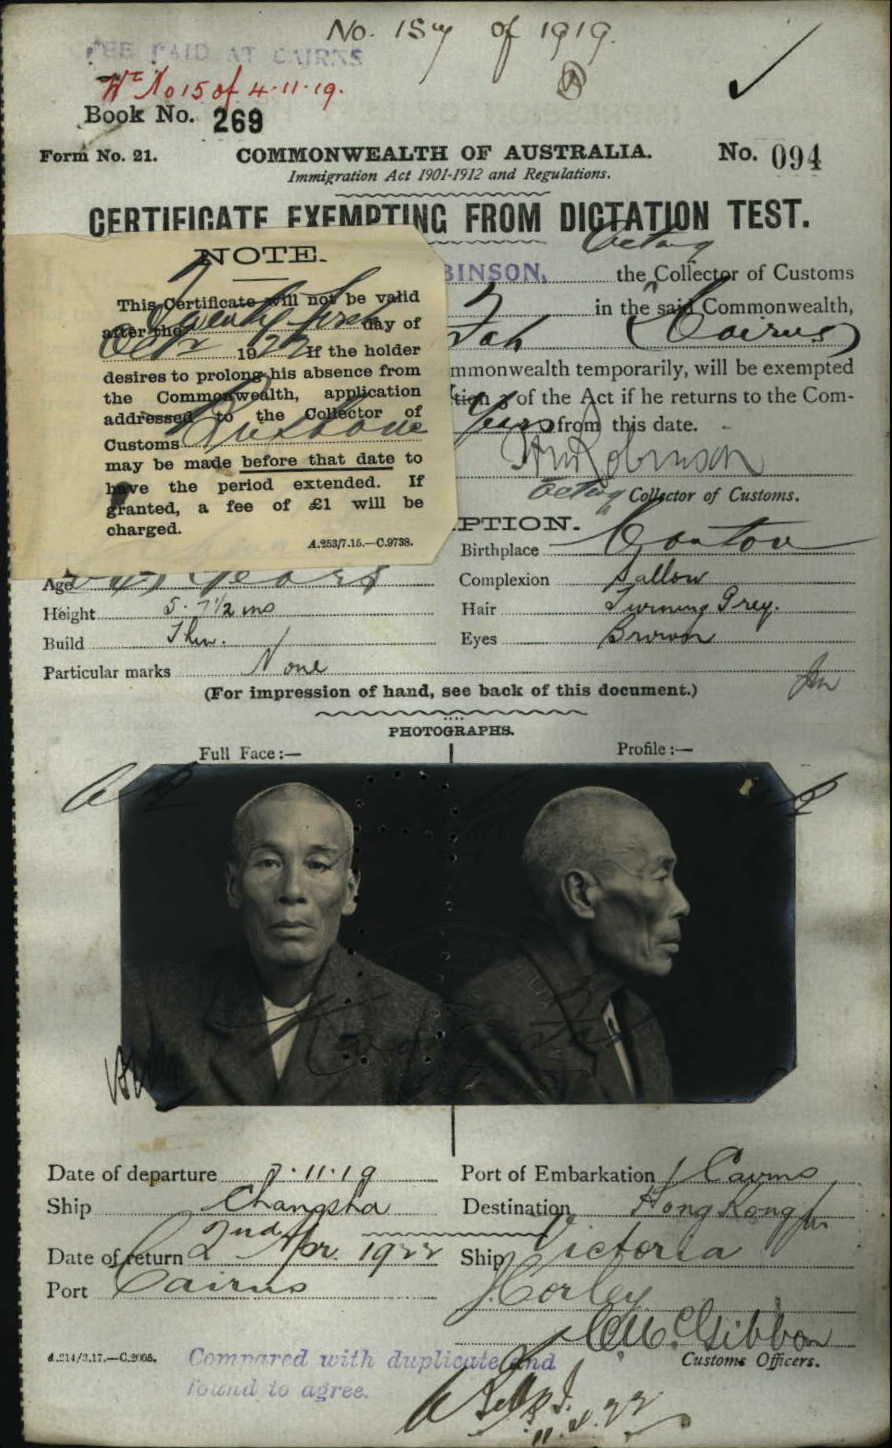 No. 157 of 1919.
FEE PAID AT CAIRNS
No 15 of 4.11.19.
Book No. 269
Form No. 21.
COMMONWEALTH OF AUSTRALIA.
No. 094
Immigration Act 1901-1912 and Regulations.
CERTIFICATE EXEMPTING FROM DICTATION TEST.
Acting
BINSON, the Collector of Customs
in the said Commonwealth,
Cairns
mmonwealth temporarily, will be exempted
of the Act if he returns to the Com-
from this date.
Robinson
Acting Collector of Customs.
NOTE.
This Certificate will not be valid
after the Twenty first day of
Octr 1922 If the holder
desires to prolong his absence from
the Commonwealth, application
addressed to the Collector of
Customs Brisbane
may be made before that date to
have the period extended. If
granted, a fee of £1 will be
charged.
A.253/7.15.—C.9738.
PTION.
Birthplace Canton
Age years
Complexion Sallow
Height 5. 7½ ins
Hair Turning Grey.
Build Thin.
Eyes Brown
Particular marks None
(For impression of hand, see back of this document.)
PHOTOGRAPHS.
Full Face:—
Profile:—
Date of departure 7.11.19
Port of Embarkation Cairns
Ship Changsha
Destination Hong Kong
Date of return 2nd Apr. 1922
Ship Victoria
Port Cairns
Corley
McGibbon
Customs Officers.
A.214/3.17.—C.2005.
Compared with duplicate and
found to agree.